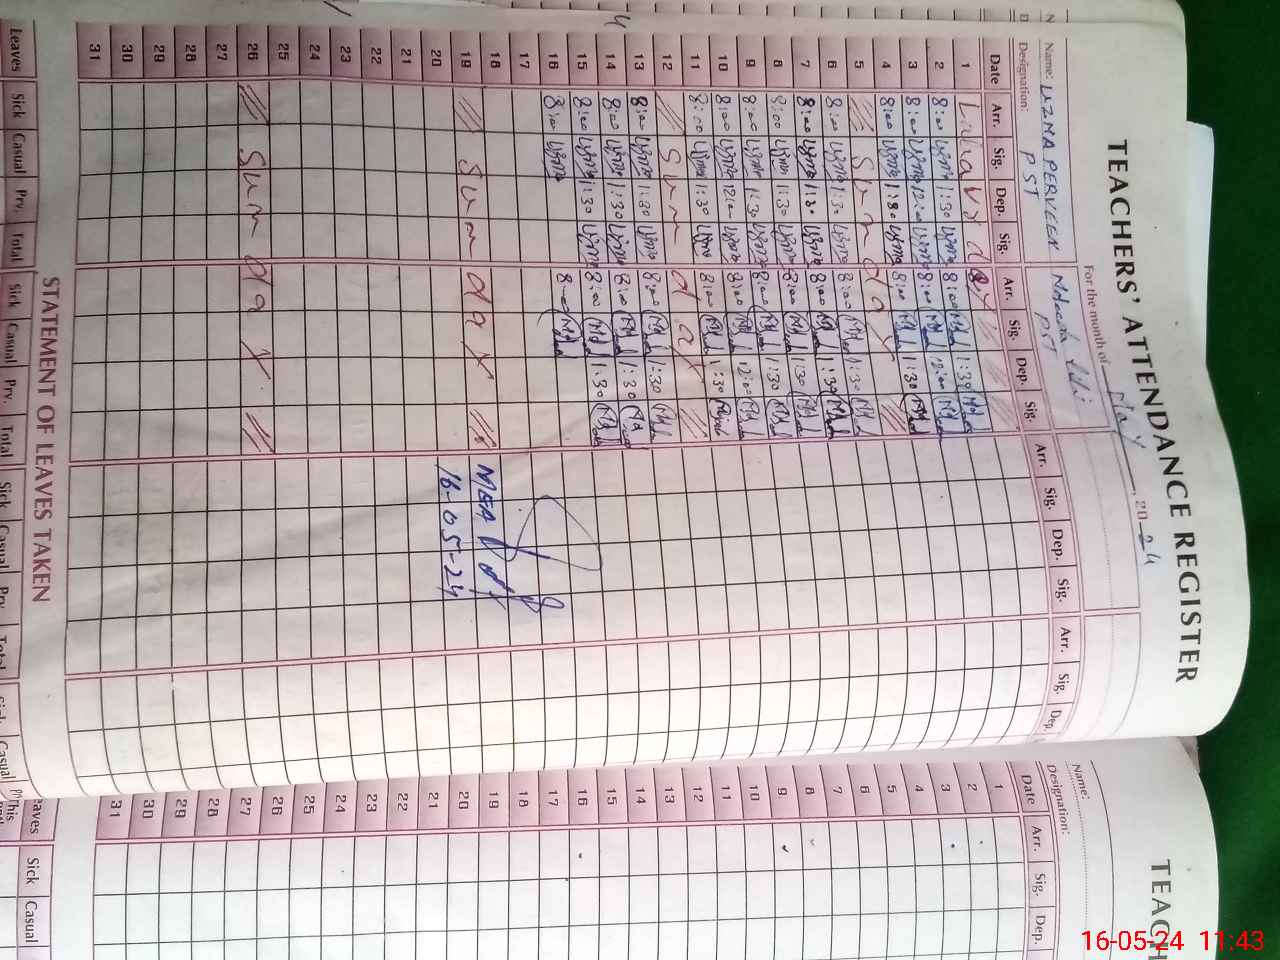 TEACHERS' ATTENDANCE REGISTER
For the month of May, 2024
Name: UZMA PERVEEN
Designation: PST PST
Date Arr. Sig. Dep. Sig. Arr. Sig. Dep. Sig. Arr. Sig. Dep. Sig. Arr. Sig. Dep.
1 Labour day
2 8:00 Uzma 1:30 Uzma 8:00 1:30
3 8:00 Uzma 12:00 Uzma 8:00 12:00
4 8:00 Uzma 1:30 Uzma 8:00 1:30
5 Sunday
6 8:00 Uzma 1:30 Uzma 8:00 1:30
7 8:00 Uzma 1:30 Uzma 8:00 1:30
8 8:00 Uzma 1:30 Uzma 8:00 1:30
9 8:00 Uzma 1:30 Uzma 8:00 1:30
10 8:00 Uzma 12:00 Uzma 8:00 12:00
11 8:00 Uzma 1:30 Uzma 8:00 1:30
12 Sunday
13 8:00 Uzma 1:30 Uzma 8:00 1:30
14 8:00 Uzma 1:30 Uzma 8:00 1:30
15 8:00 Uzma 1:30 Uzma 8:00 1:30
16 8:00 Uzma 8:00
17
18
19 Sunday
MEA
16-05-24
20
21
22
23
24
25
26 Sunday
27
28
29
30
31
STATEMENT OF LEAVES TAKEN
Leaves Sick Casual Prv. Total Sick Casual Prv. Total Sick Casual Prv. Total Sick Casual
TEACH
Name:
Designation:
Date Arr. Sig. Dep.
1
2
3
4
5
6
7
8
9
10
11
12
13
14
15
16
17
18
19
20
21
22
23
24
25
26
27
28
29
30
31
eaves Sick Casual
16-05-24 11:43